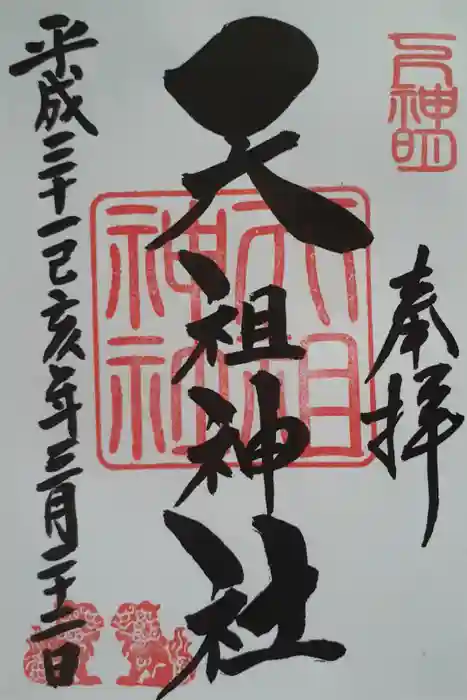 奉拝
天祖神社
天祖神社
平成三十一己亥年三月二十二日